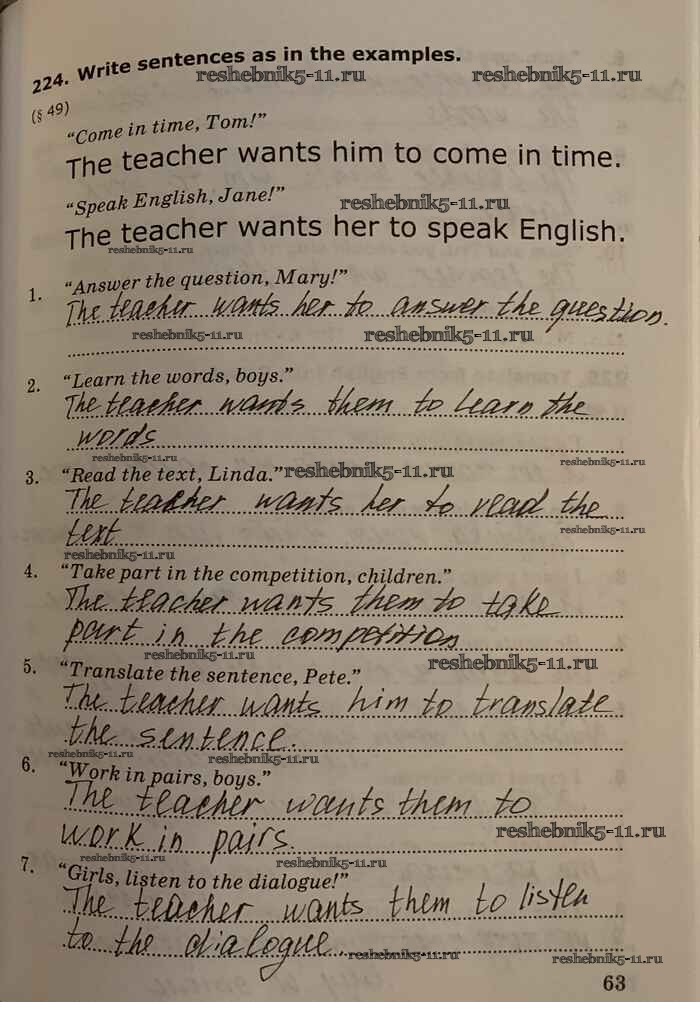 224. Write sentences as in the examples.
reshebnik5-11.ru reshebnik5-11.ru
(§ 49)
“Come in time, Tom!”
The teacher wants him to come in time.
“Speak English, Jane!” reshebnik5-11.ru
The teacher wants her to speak English.
reshebnik5-11.ru
1. “Answer the question, Mary!”
The teacher wants her to answer the question.
reshebnik5-11.ru reshebnik5-11.ru
2. “Learn the words, boys.”
The teacher wants them to learn the
words
reshebnik5-11.ru reshebnik5-11.ru
3. “Read the text, Linda.” reshebnik5-11.ru
The teacher wants her to read the
text reshebnik5-11.ru
reshebnik5-11.ru
4. “Take part in the competition, children.”
The teacher wants them to take
part in the competition
reshebnik5-11.ru reshebnik5-11.ru
5. “Translate the sentence, Pete.”
The teacher wants him to translate
the sentence.
reshebnik5-11.ru reshebnik5-11.ru
6. “Work in pairs, boys.”
The teacher wants them to
work in pairs. reshebnik5-11.ru
reshebnik5-11.ru reshebnik5-11.ru
7. “Girls, listen to the dialogue!”
The teacher wants them to listen
to the dialogue
reshebnik5-11.ru reshebnik5-11.ru
63